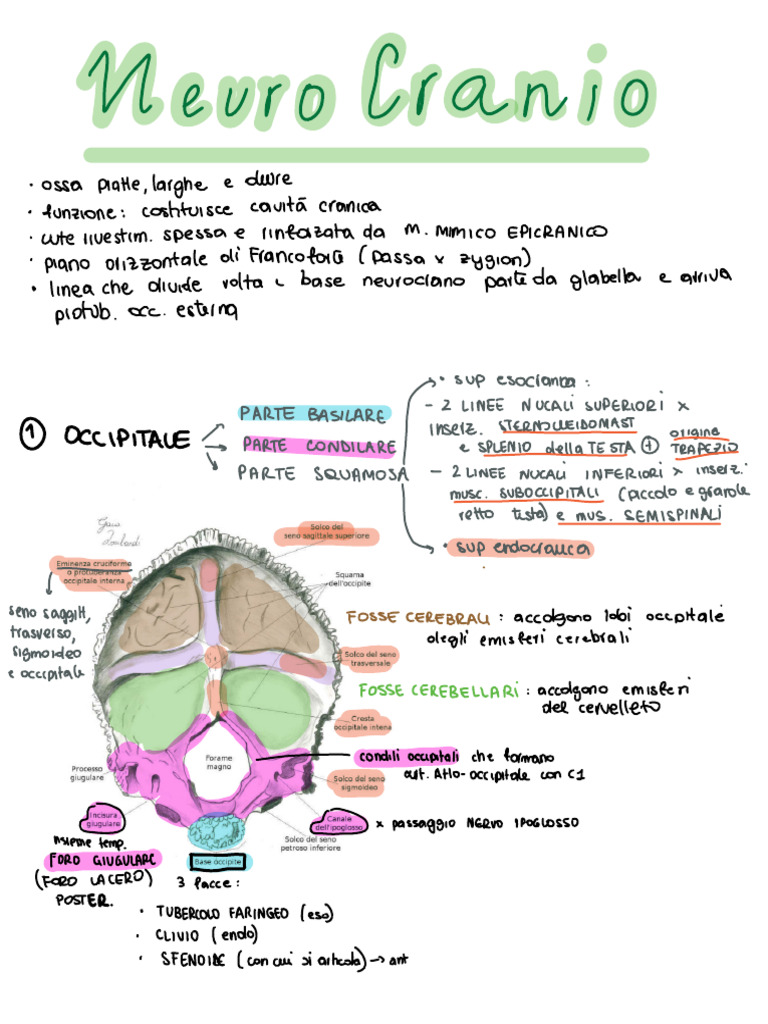 Neuro Cranio
· ossa piatte, larghe e dure
· funzione: costituisce cavità cranica
· cute rivestim. spessa e rinforzata da M. MIMICO EPICRANICO
· piano orizzontale di Francoforte (passa x zygion)
· linea che divide volta e base neurocranio parte da glabella e arriva
protub. occ. esterna
① OCCIPITALE
PARTE BASILARE
PARTE CONDILARE
PARTE SQUAMOSA
· sup esocranica :
- 2 LINEE NUCALI SUPERIORI x
inserz. STERNOCLEIDOMAST
e SPLENIO della TESTA + origine TRAPEZIO
- 2 LINEE NUCALI INFERIORI x inserz.
musc. SUBOCCIPITALI (piccolo e grande
retto testa) e mus. SEMISPINALI
· sup endocranica
Solco del
seno sagittale superiore
Eminenza cruciforme
o protuberanza
occipitale interna
Squama
dell'occipite
seno sagitt,
trasverso,
sigmoideo
e occipitale
FOSSE CEREBRALI : accolgono lobi occipitale
degli emisferi cerebrali
Solco del seno
trasversale
FOSSE CEREBELLARI : accolgono emisferi
del cervelleto
Cresta
occipitale intena
Forame
magno
condili occipitali che formano
art. Atlo-occipitale con C1
Processo
giugulare
Solco del seno
sigmoideo
Incisura
giugulare
Canale
dell'ipoglosso
x passaggio NERVO IPOGLOSSO
Solco del seno
petroso inferiore
insieme temp.
FORO GIUGULARE
(FORO LACERO)
POSTER.
Base occipite
3 facce :
· TUBERCOLO FARINGEO (eso)
· CLIVIO (endo)
· SFENOIDE (con cui si articola) → ant